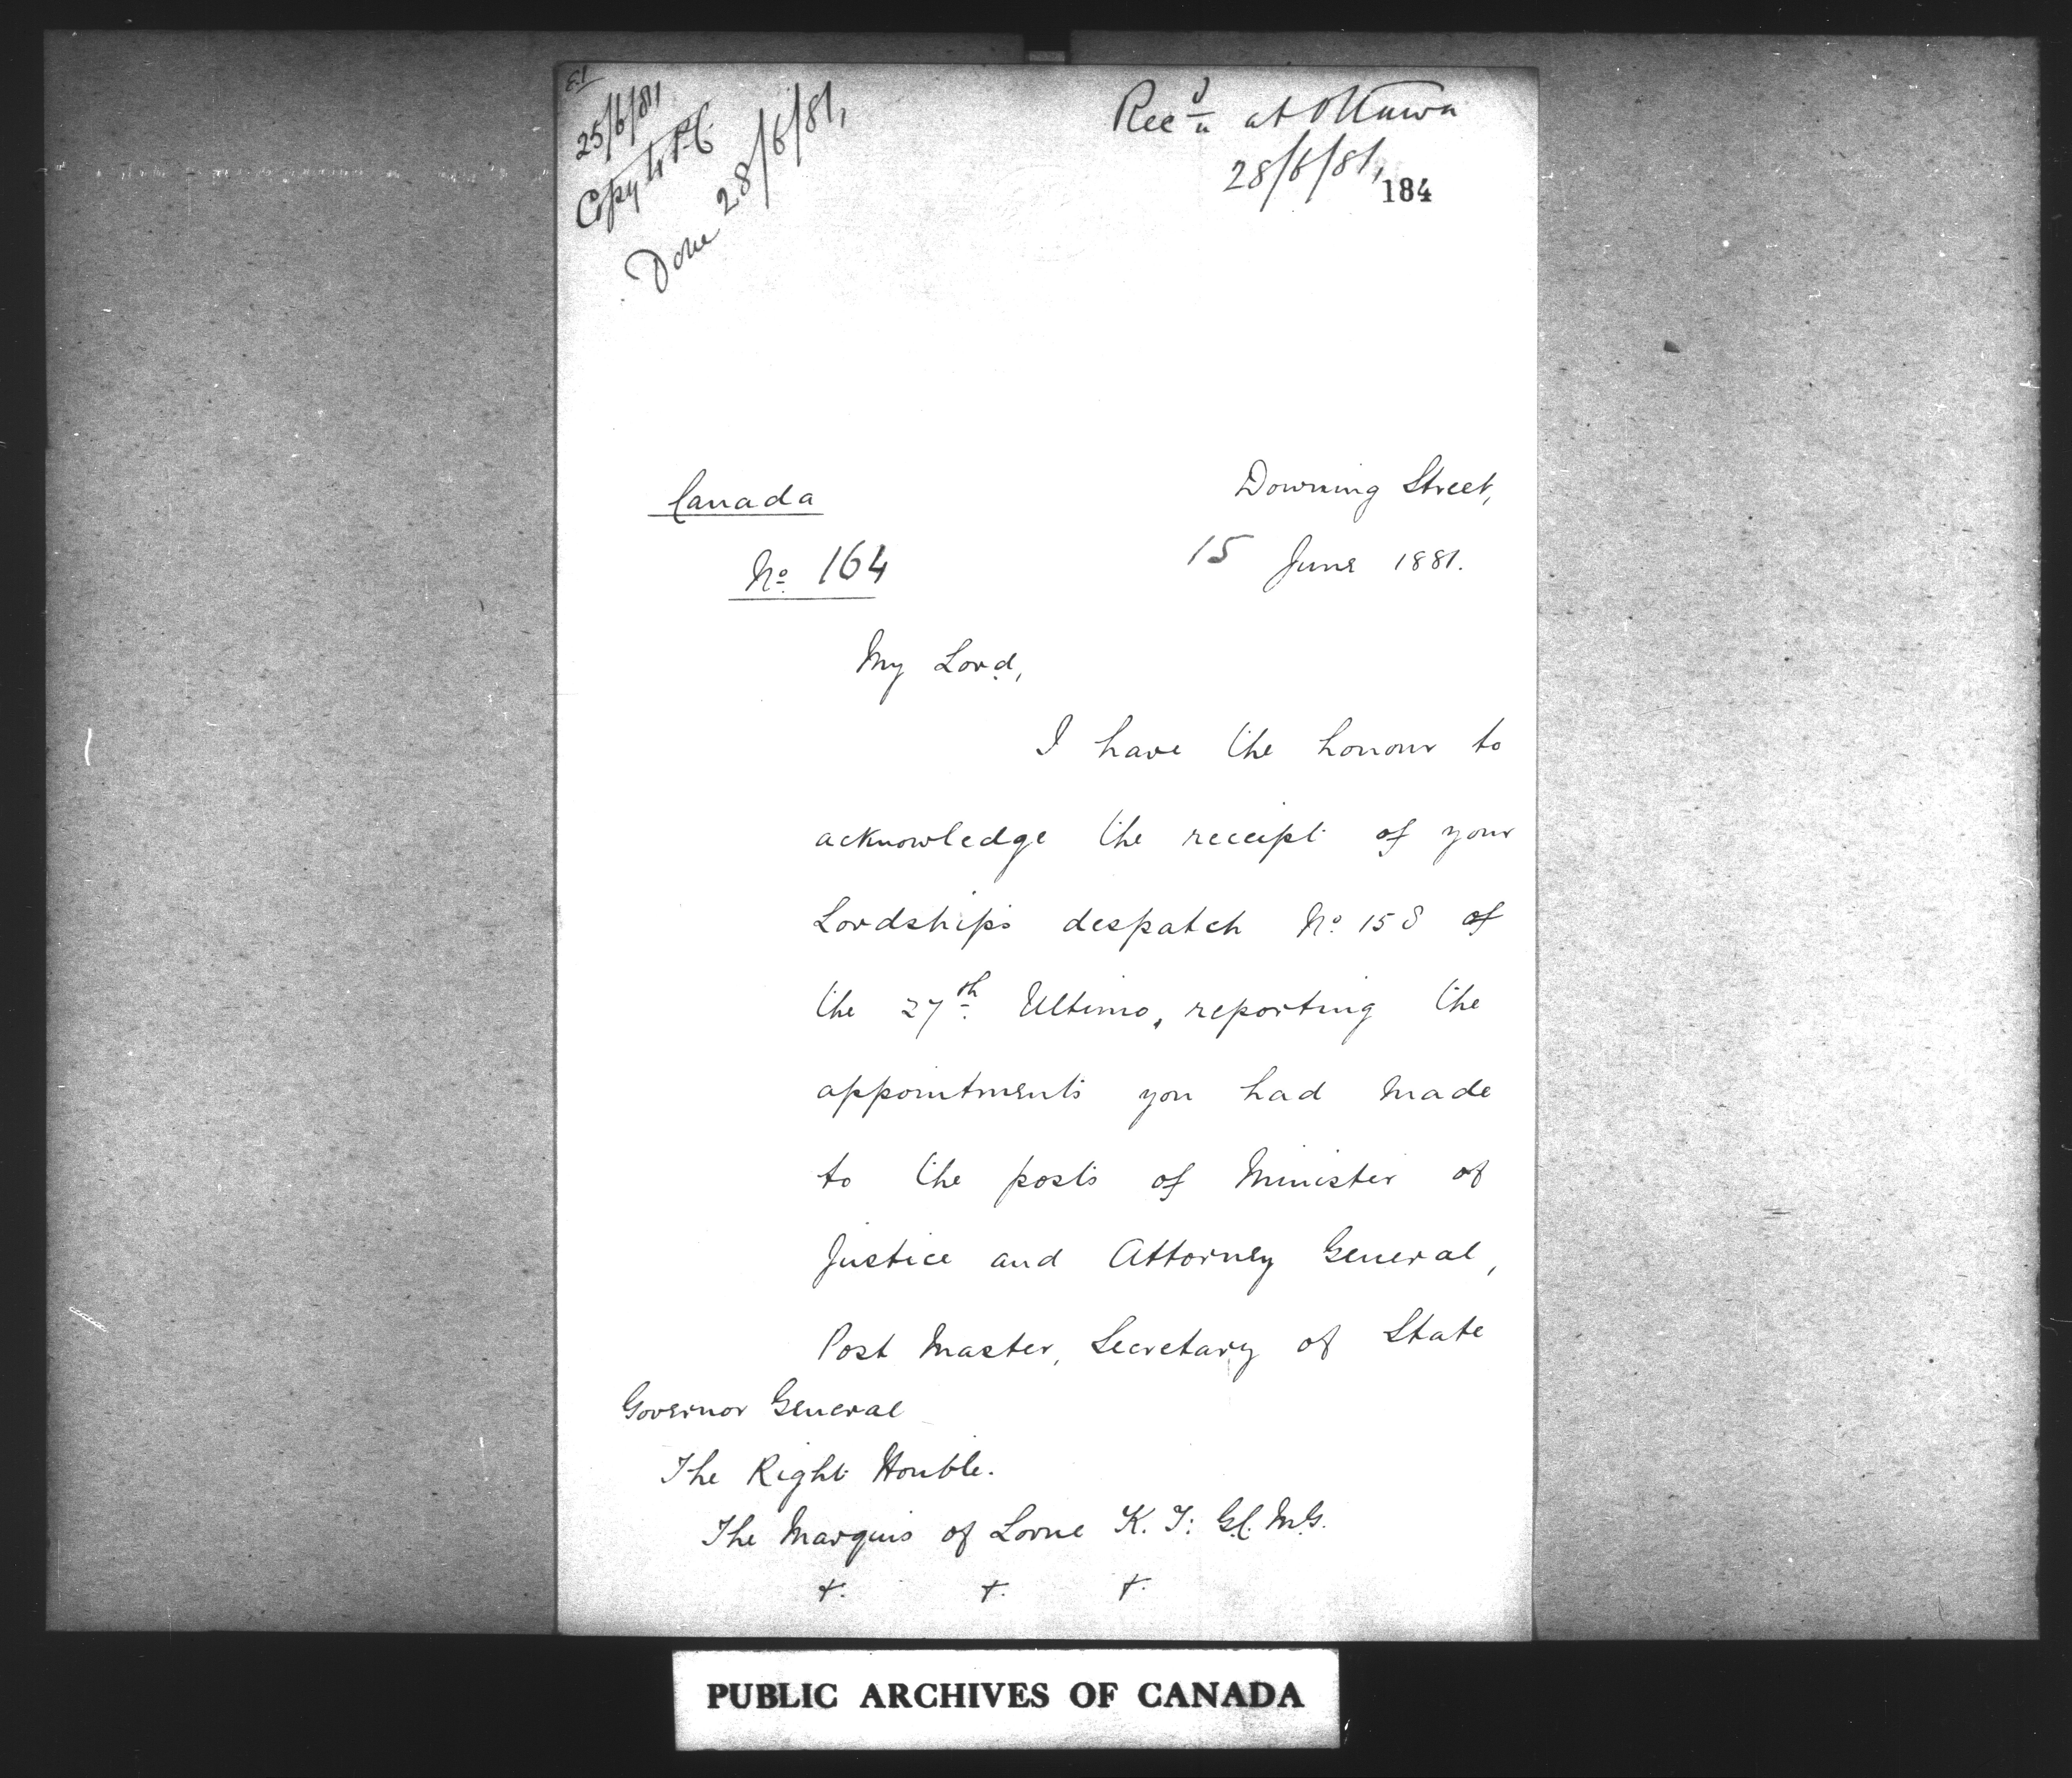 25/6/81,
Copy to P.C.
Done 28/6/81,
Rec'd at Ottawa
28/6/81,
184
Canada
Downing Street,
No. 164
15 June 1881.
My Lord,
I have the honour to
acknowledge the receipt of your
Lordship's despatch No. 158 of
the 27th Ultimo, reporting the
appointments you had made
to the posts of Minister of
Justice and Attorney General,
Post Master, Secretary of State
Governor General
The Right Honble.
The Marquis of Lorne K. T. G.C.M.G.
+. +. +.
PUBLIC ARCHIVES OF CANADA